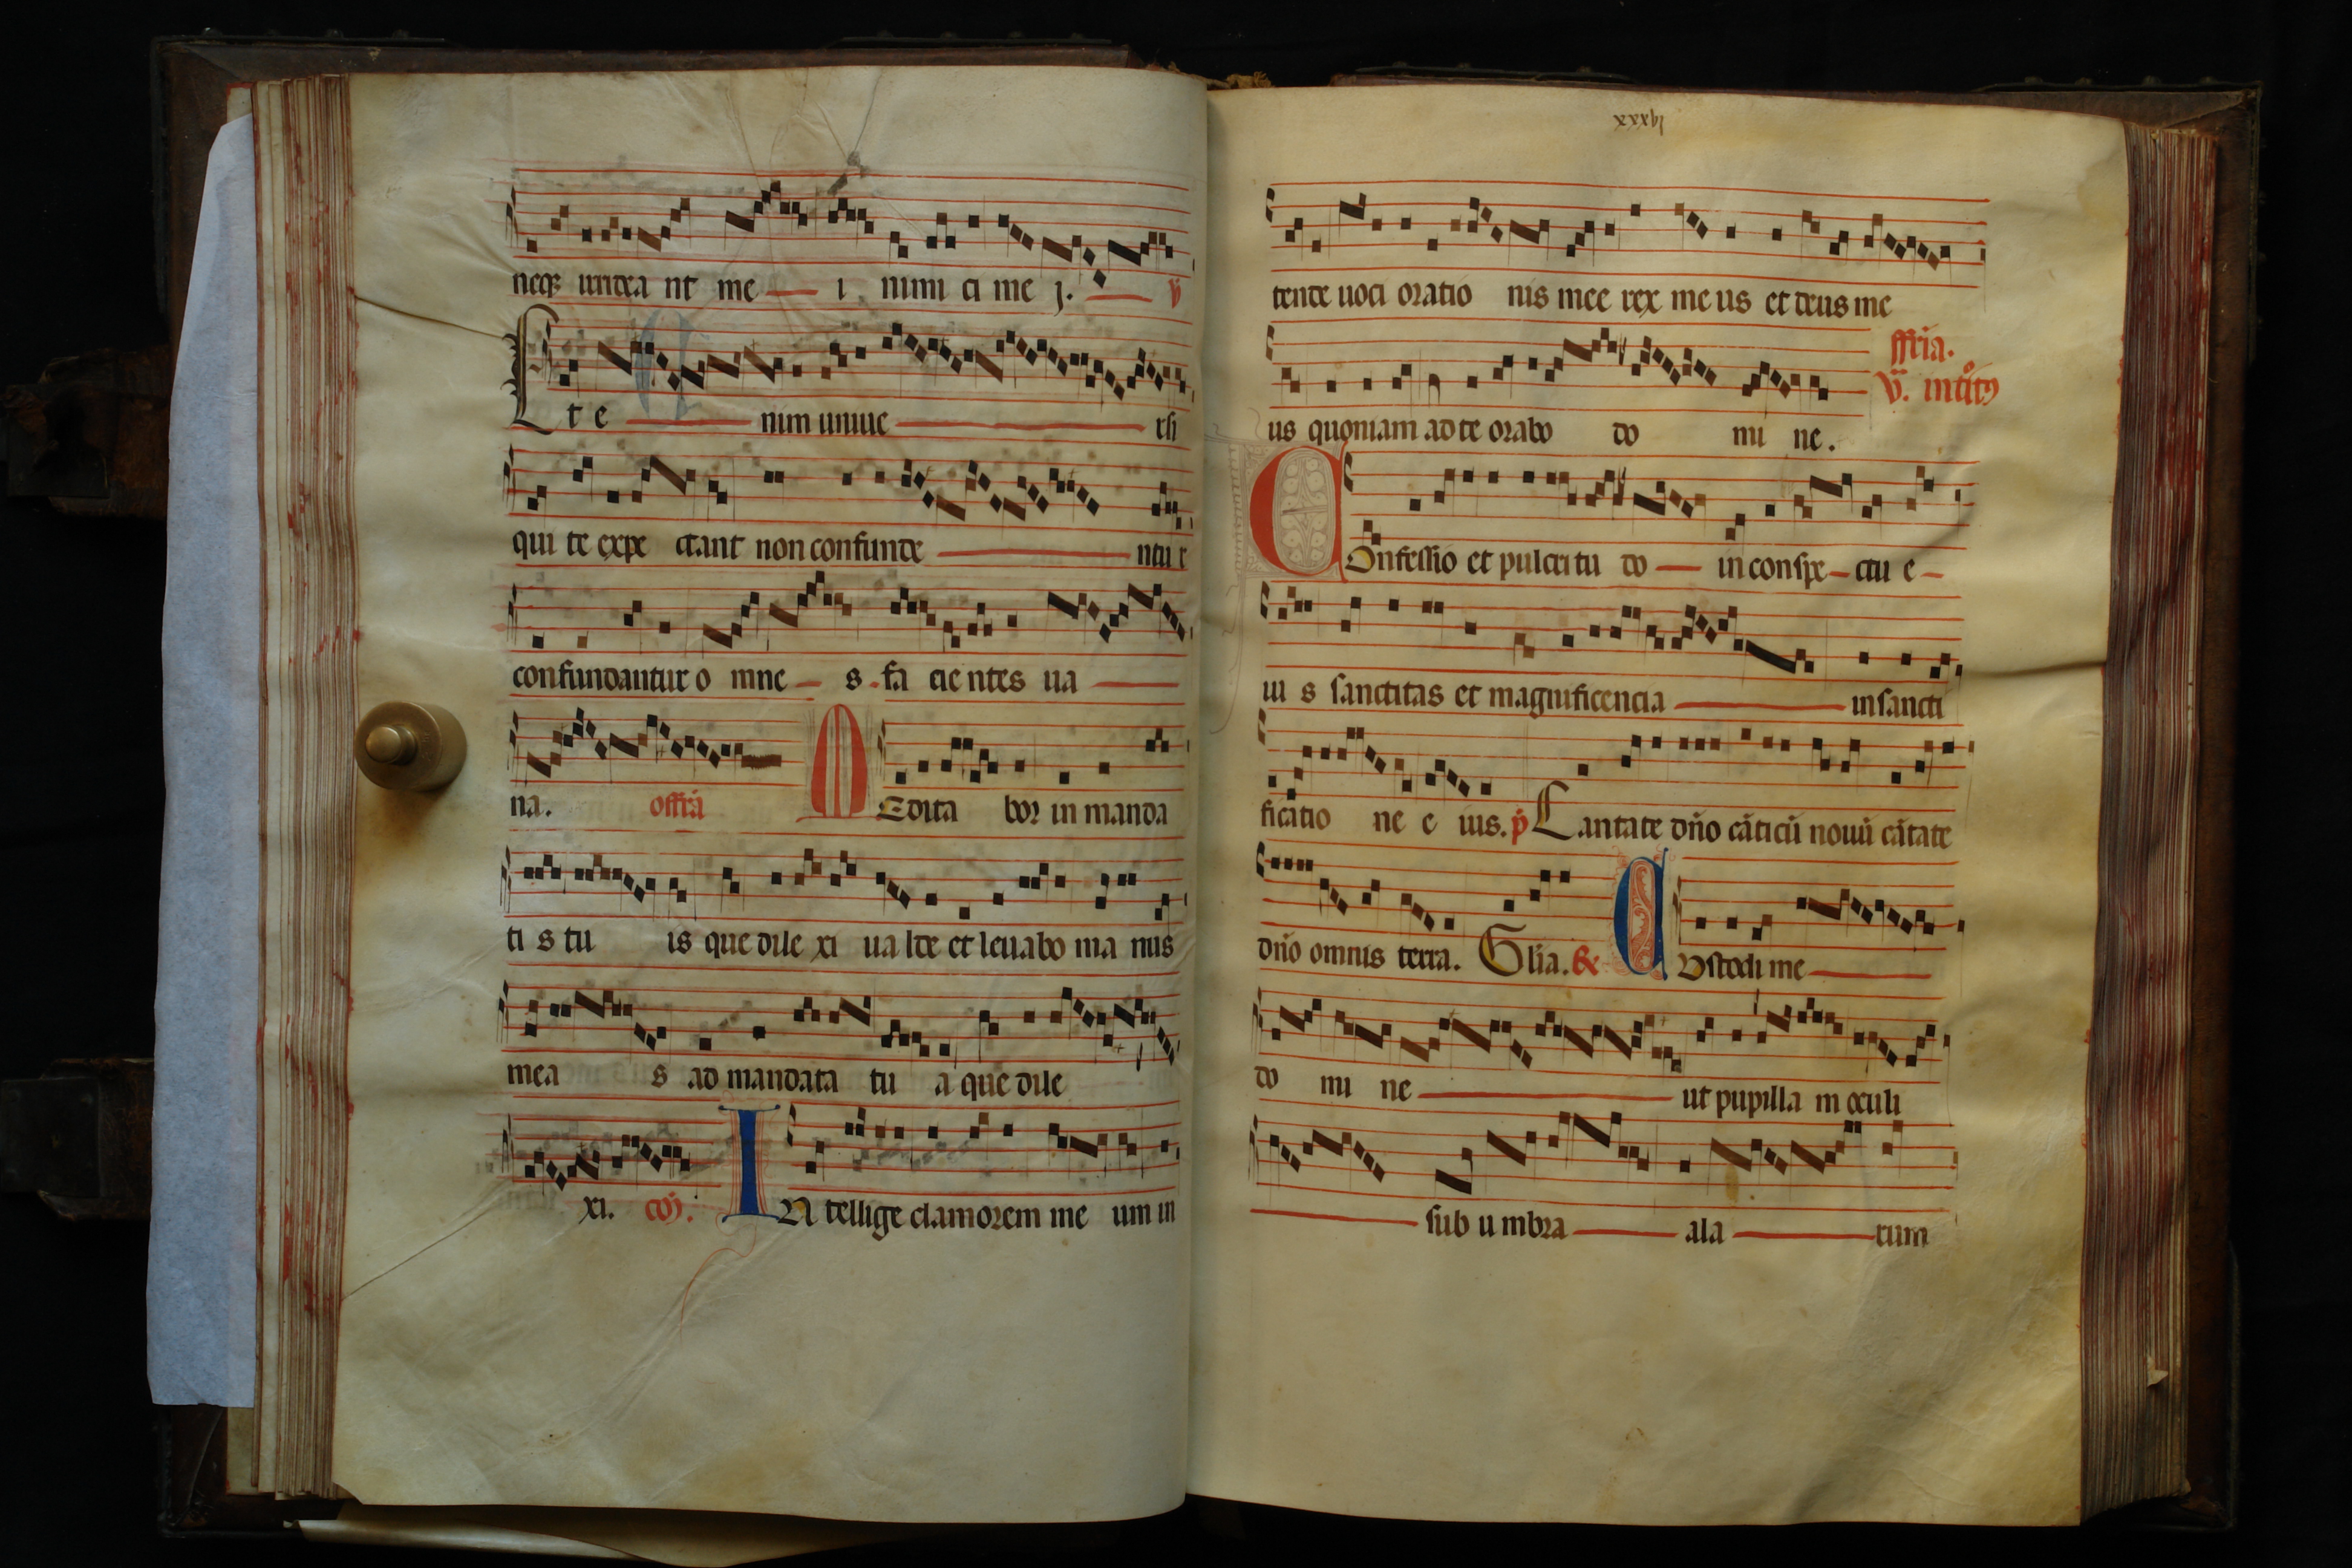 neqz irridea nt me i nimi ci me j. v
Et e nim uniue rsi
qui te expe ctant non confunde ntu r
confundantur o mne s fa cie ntes ua
na. offra Medita bor in manda
ti s tu is que dile xi ua lde et leuabo ma nus
mea s ad mandata tu a que dile
xi. co. IN tellige clamorem me um in
lxxxvj
tende uoci oratio nis mee rex me us et deus me
ffria.
us quoniam ad te orabo do mi ne.
v. introito
COnfessio et pulcritu do in conspe ctu e
iu s sanctitas et magnificencia in sancti
ficatio ne e ius. p Cantate dño cãticũ nouũ cãtate
dño omnis terra. Glia. & CUstodi me
do mi ne ut pupilla m oculi
sub u mbra ala rum